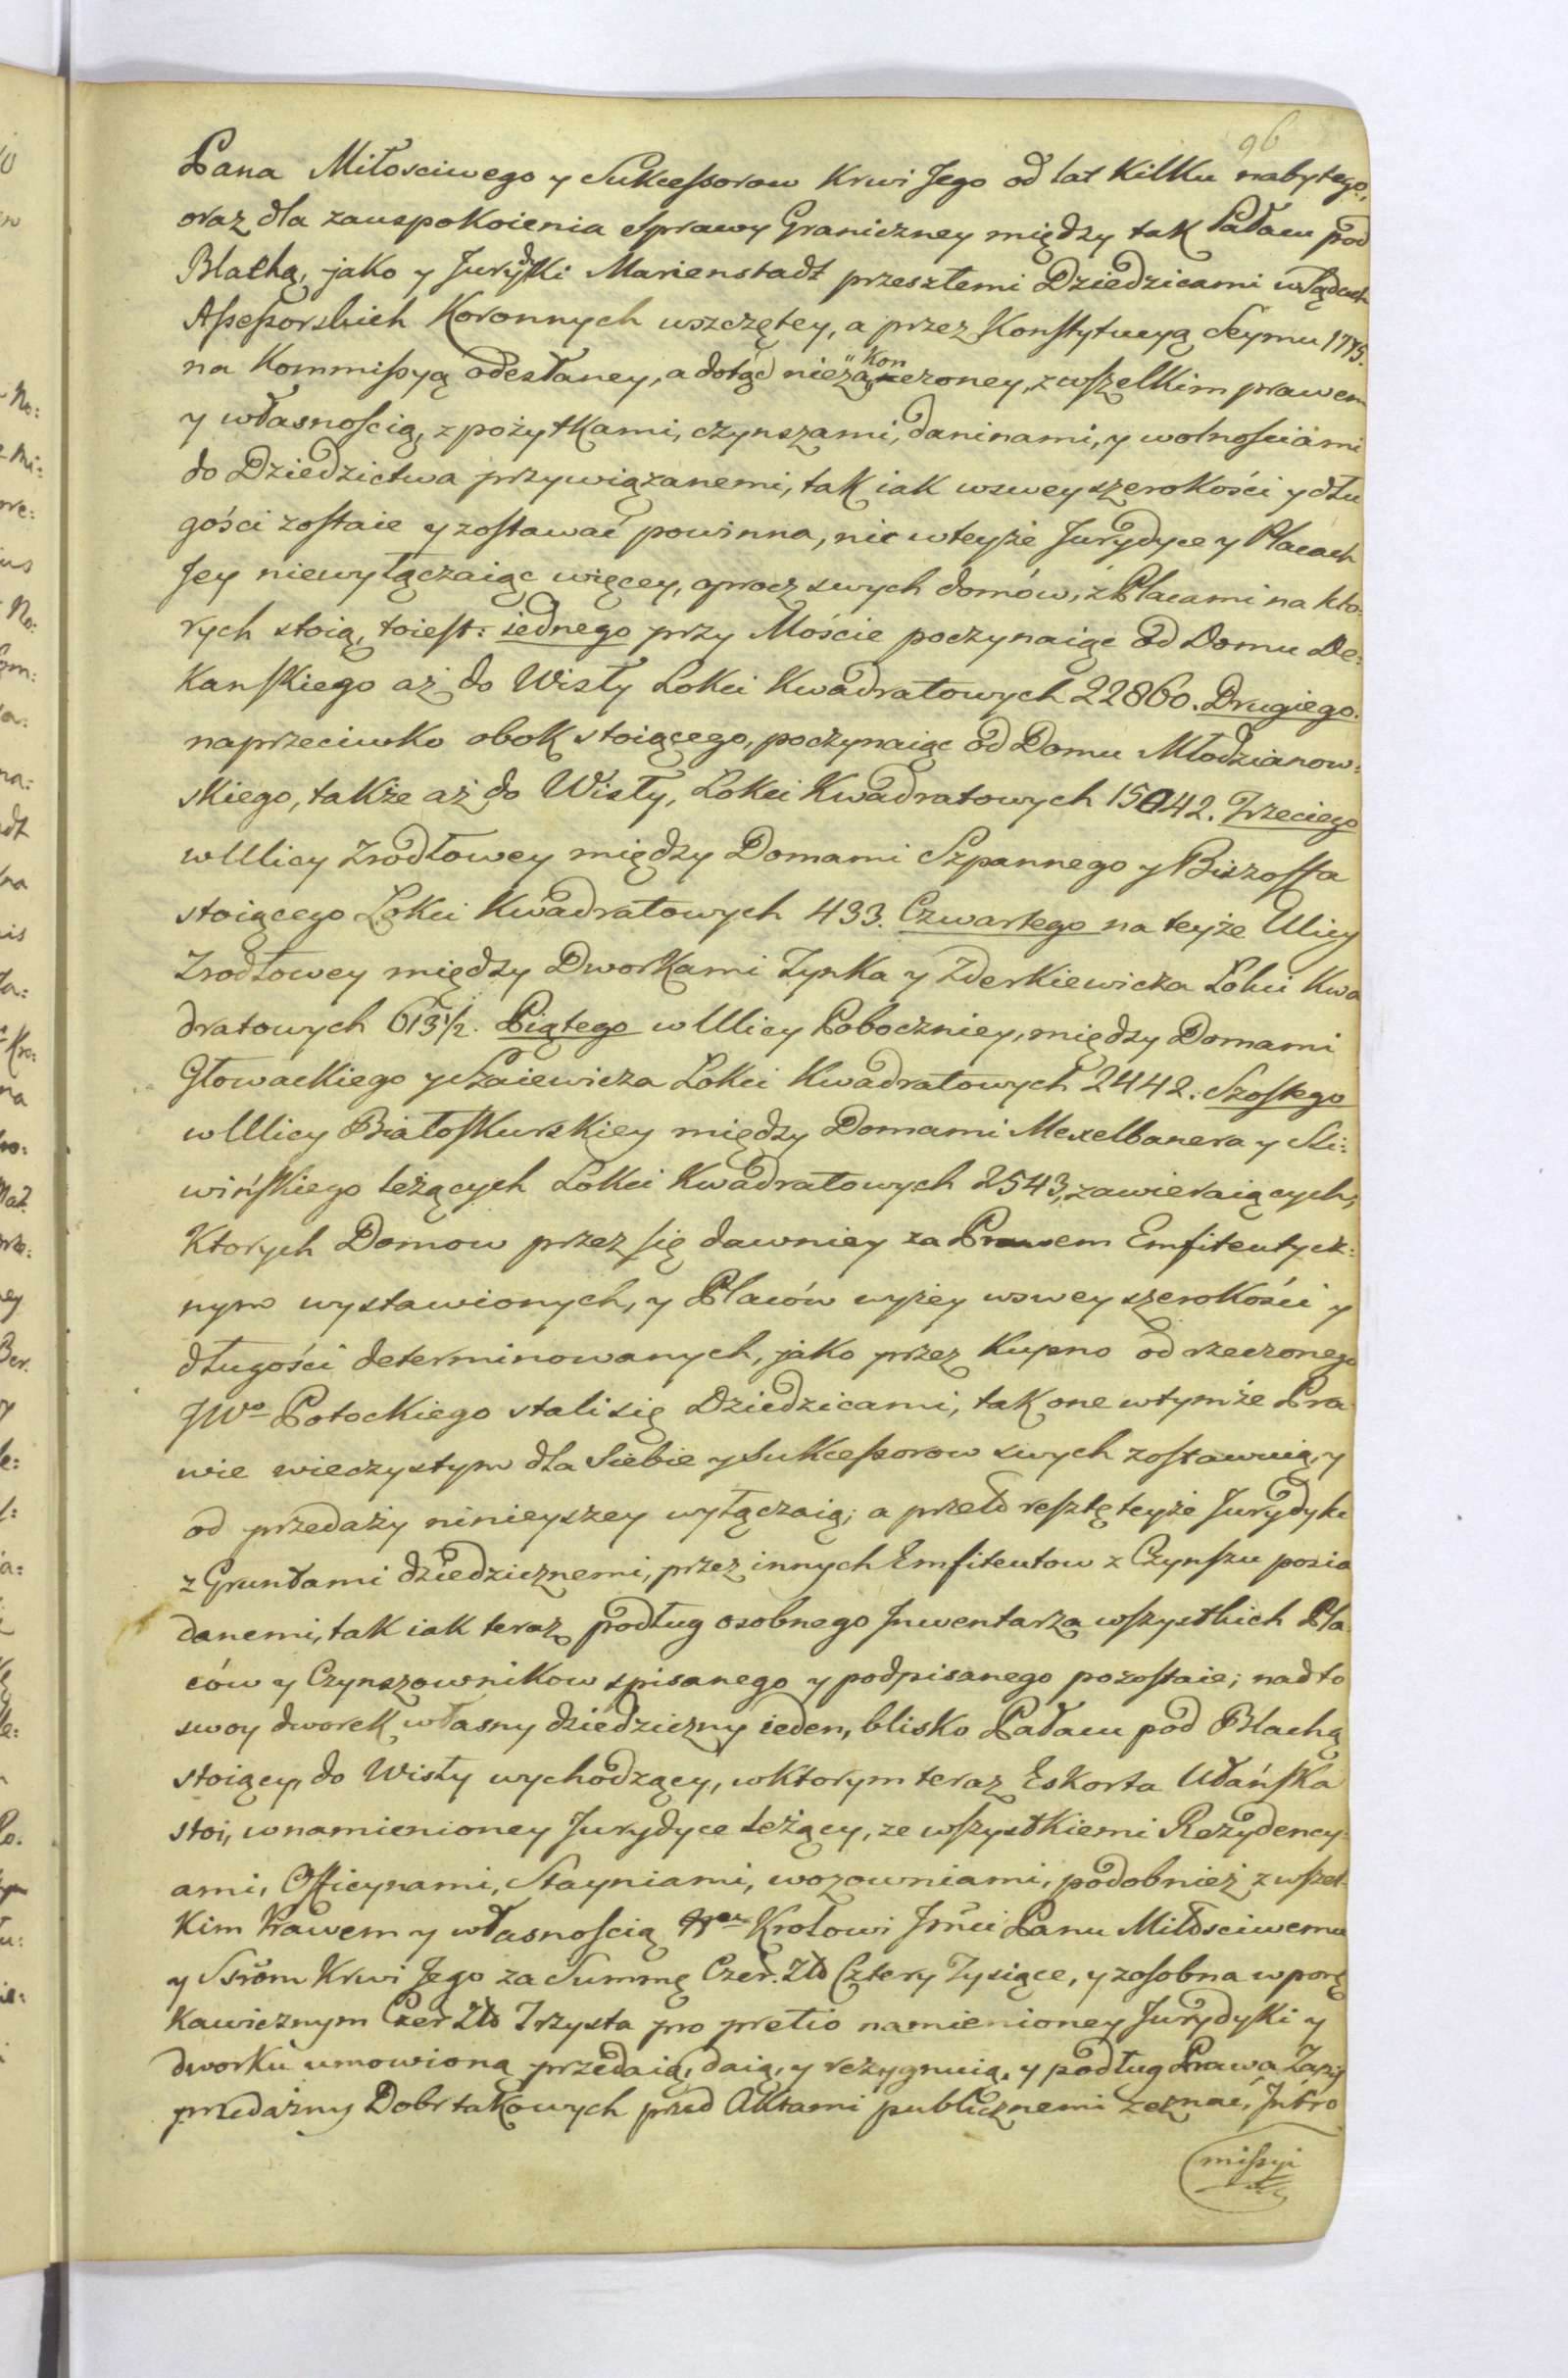 96
Pana Miłosciwego y Sukcessorow Krwi Jego od lat Kilku nabytego,
oraz dla zauspokoienia Sprawy Graniczney między tak Pałacu pod
Blachą, jako y Jurydyki Marienstadt przeszłemi Dziedzicami w Sądach
Assessorskich Koronnych wszczętey, a przez Konstytucyą Seymu 1775.
na Kommissyą odesłaney, a dotąd niezakonczoney, z wszelkim prawem
y własnością, z pożytkami, czynszami, daninami, y wolnościami
do Dziedzictwa przywiązanemi, tak iak wswey szerokości y dłu
gości zostaie y zostawać powinna, nic wteyże Jurydyce y Placach
Jey niewyłączaiąc więcey, oprocz swych domów, z Placami na kto-
rych stoią, toiest: iednego przy Moście poczynaiąc od Domu De:
Kanskiego aż do Wisły Łokci Kwadratowych 22860. Drugiego.
naprzeciwko obok stoiącego, poczynaiąc od Domu Młodzianow:
skiego, także aż do Wisły, Łokci Kwadratowych 15042. Trzeciego
w Ulicy Zrodłowey między Domami Szpannego y Biszoffa
stoiącego Łokci Kwadratowych 433. Czwartego na teyże Ulicy
Zrodłowey między Dworkami Zynka y Zderkiewicza Łokci Kwa
dratowych 613 1/2. Piątego w Ulicy Poboczniey, między Domami
Głowackiego y Szaiewicza Łokci Kwadratowych 2442. Szostego
w Ulicy Białoskurskiey między Domami Mexelbanera y Sli:
wińskiego leżących Łokci Kwadratowych 2543, zawieraiących,
Ktorych Domow przez się dawniey za Prawem Emfiteutycz:
nym wystawionych, y Placów wyżey wswey szerokości y
długości determinowanych, jako przez Kupno od rzeczonego
JWo Potockiego stali się Dziedzicami, tak one wtymże Pra
wie wieczystym dla Siebie y Sukcessorow swych zostawuią, y
od przedaży ninieyszey wyłączaią; a przeto resztę teyże Jurydyki
z Gruntami dziedzicznemi, przez innych Emfiteutow z Czynszu posia
danemi, tak iak teraz podług osobnego Inwentarza wszystkich Pla
ców y Czynszownikow spisanego y podpisanego pozostaie; nadto
swoy dworek własny dziedziczny ieden, blisko Pałacu pod Blachą
stoiący, do Wisły wychodzący, w ktorym teraz Eskorta Ułańska
stoi, wnamienioney Jurydyce leżący, ze wszystkiemi Rezydency:
ami, Officynami, Stayniami, wozowniami, podobnież z wszel-
Kim Prawem y własnością Krolowi Jmci Panu Miłościwemu
y Ssrom Krwi Jego za Summę Czer. Zło Cztery Tysiące, y zosobna w porę
Kawicznym Czer Zło Trzysta pro pretio namienioney Jurydyki y
dworku umowioną przedaią, daią, y rezygnuią, y podług Prawa Zapis
przedażny Dobr takowych przed Aktami publicznemi zeznać, Intro
missyi